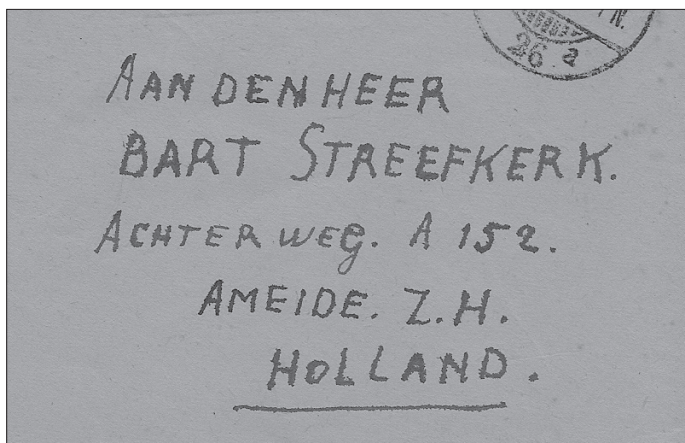 26 a
AAN DEN HEER
BART STREEFKERK.
ACHTERWEG. A 152.
AMEIDE. Z.H.
HOLLAND.